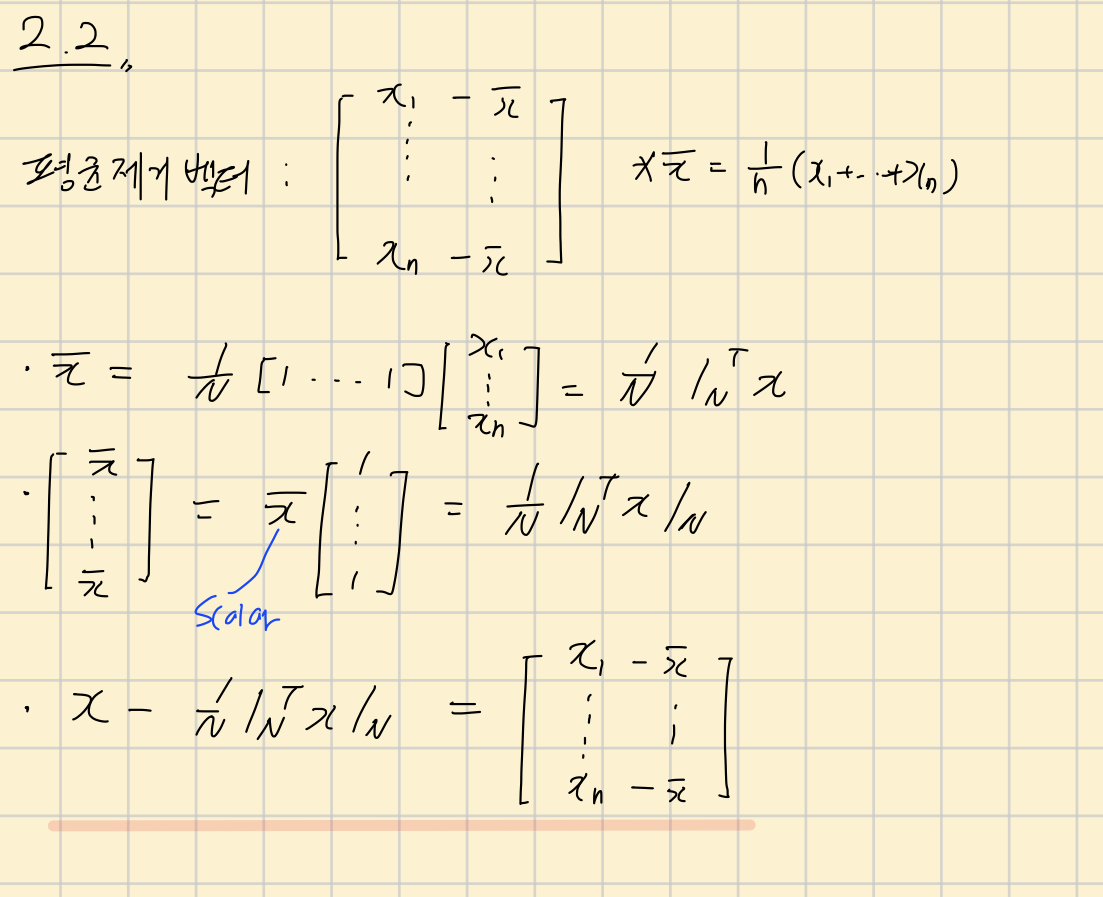 2.2
평균 제거 벡터 : [ x₁ - x̄ ⋮ ⋮ xₙ - x̄ ] * x̄ = 1/n (x₁+...+xₙ)
· x̄ = 1/N [1 .... 1] [ x₁ ⋮ xₙ ] = 1/N 1_N^T x
· [ x̄ ⋮ x̄ ] = x̄ [ 1 ⋮ 1 ] = 1/N 1_N^T x 1_N
Scalar
· x - 1/N 1_N^T x 1_N = [ x₁ - x̄ ⋮ ⋮ xₙ - x̄ ]